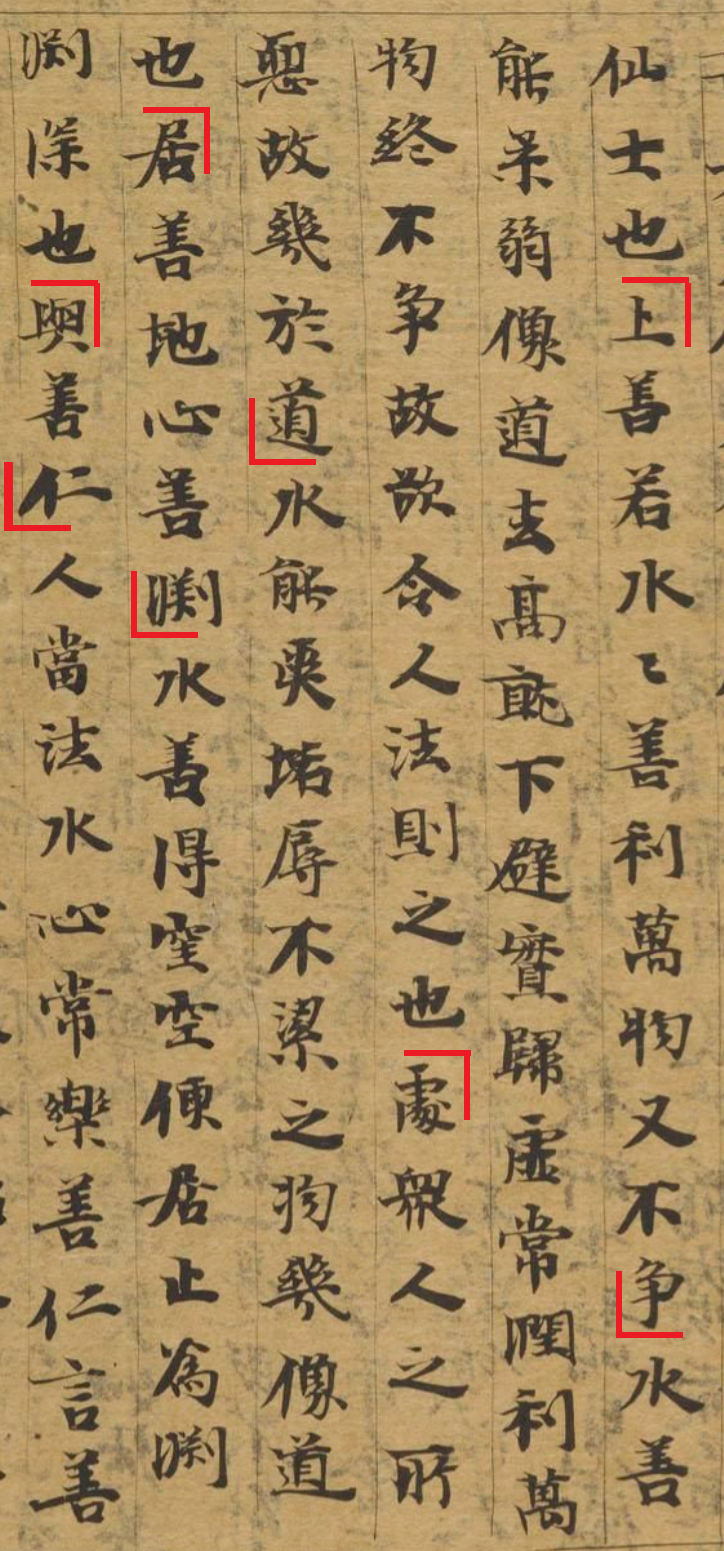 仙士也上善若水〻善利萬物又不争水善
能柔弱像道去高就下避實歸虛常潤利萬
物終不争故欲令人法則之也處衆人之所
惡故幾於道水能受垢辱不潔之物幾像道
也居善地心善渊水善得空空便居止為渊
渊深也與善仁人當法水心常樂善仁言善